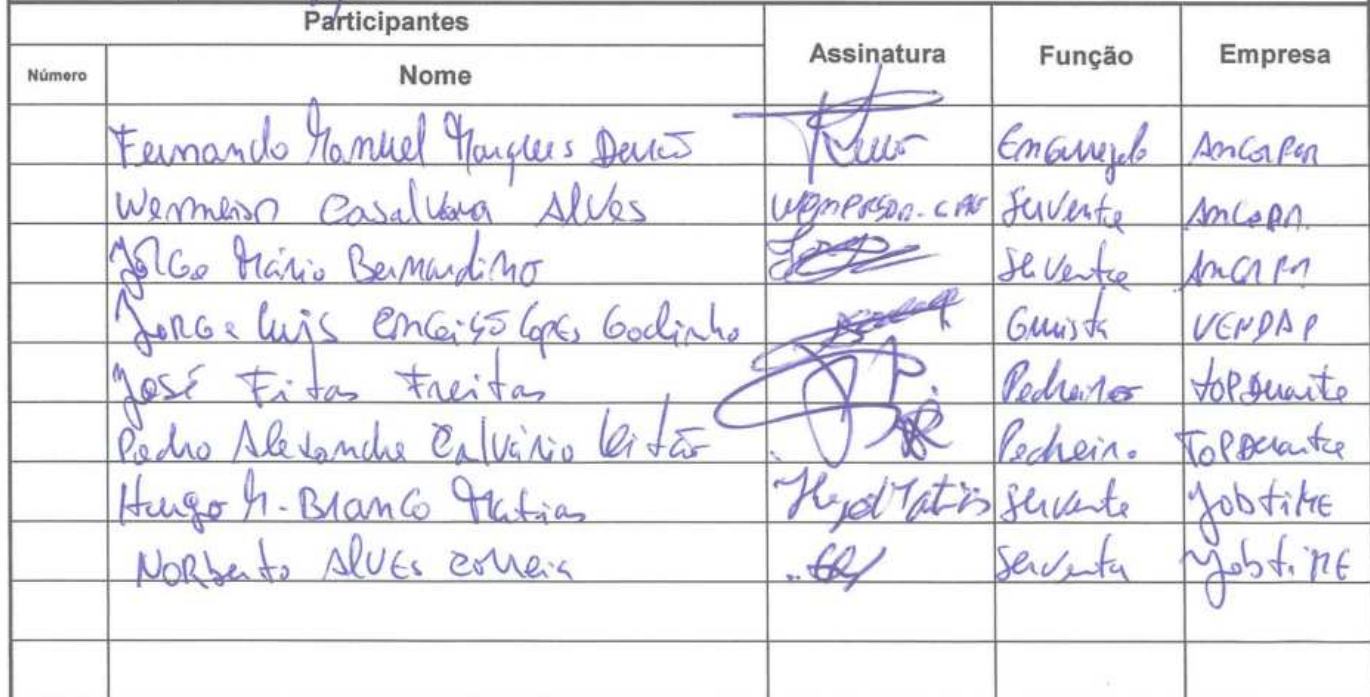 Participantes Assinatura Função Empresa
Número Nome
Fernando Manuel Marques Encarregado
Casalvara Alves Servente
Jorge Mário Bernardino Servente
Jorge Luis Lopes Godinho VENDAP
José Fitas Freitas Pedreiro TOPDuarte
Pedro Alexandre Calvário Leitão Pedreiro TOPDuarte
Hugo M. Branco Matias Hugo Matias Servente JobtiME
Norberto Alves Correia Servente JobtiME